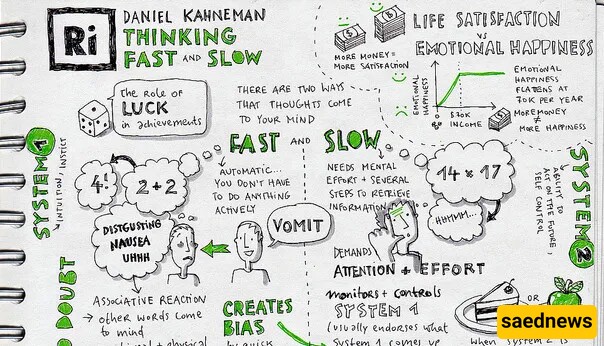 Ri
DANIEL KAHNEMAN
THINKING
FAST AND SLOW
LIFE SATISFACTION
VS
EMOTIONAL HAPPINESS
MORE MONEY =
MORE SATISFACTION
EMOTIONAL
HAPPINESS
EMOTIONAL
HAPPINESS
FLATENS AT
70K PER YEAR
$70K
INCOME
MORE MONEY
≠
MORE HAPPINESS
The role of
LUCK
in achievements
THERE ARE TWO WAYS
THAT THOUGHTS COME
TO YOUR MIND
FAST AND SLOW
SYSTEM 1
INTUITION, INSTICT
4!
2+2
AUTOMATIC...
YOU DON'T HAVE
TO DO ANYTHING
ACTIVELY
NEEDS MENTAL
EFFORT + SEVERAL
STEPS TO RETRIEVE
INFORMATION
14 × 17
HUMMM...
SYSTEM 2
ABILITY TO
ACT ON THE FUTURE,
SELF CONTROL
DISTGUSTING
NAUSEA
UHHH
VOMIT
DEMANDS
ATTENTION + EFFORT
ASSOCIATIVE REACTION
→ other words come
to mind
physical
CREATES
BIAS
by quick
monitors + controls
SYSTEM 1
(usually endorses what
system 1 comes up
OR
when system 2 is
DOUBT
saednews